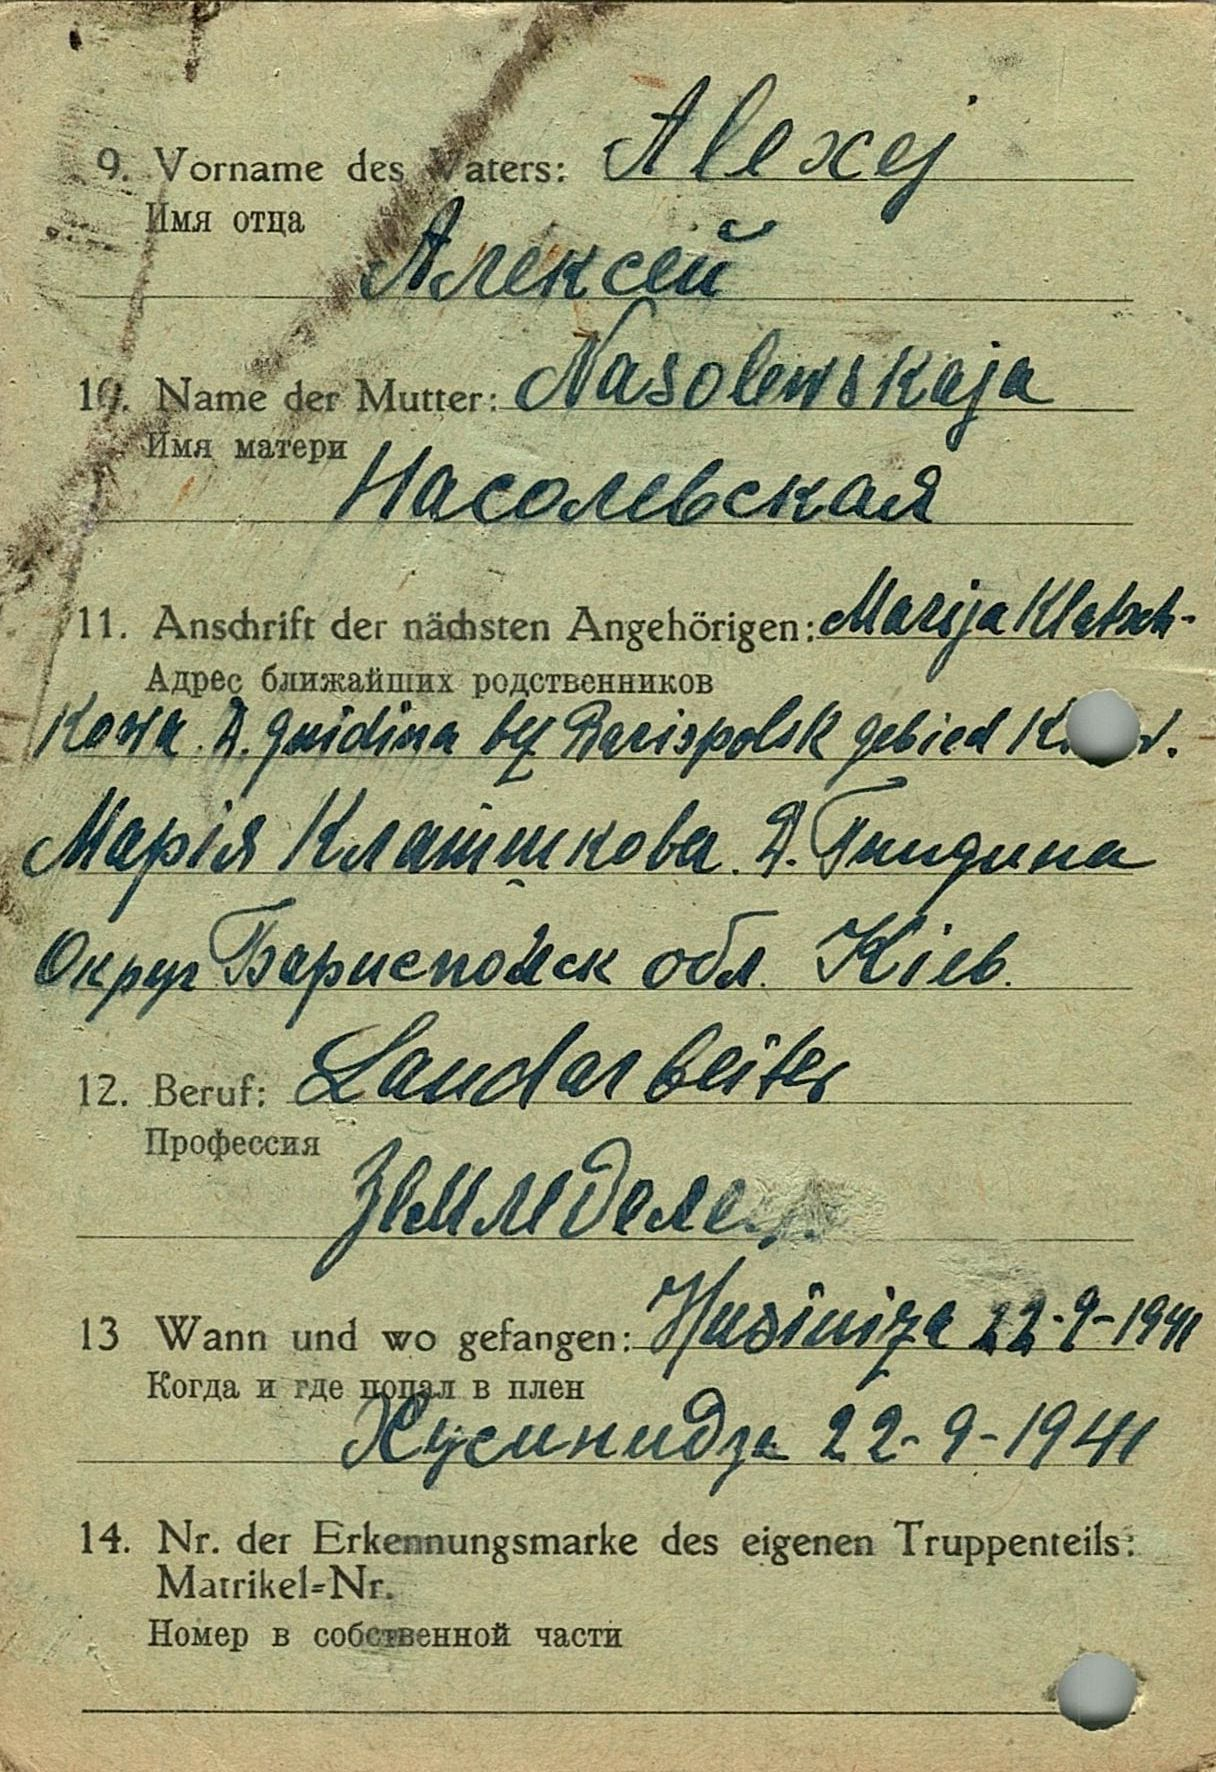 9. Vorname des Vaters: Alexej
Имя отца
Алексей
10. Name der Mutter: Nasolewskaja
Имя матери
Насолевская
11. Anschrift der nächsten Angehörigen: Marija Klatsch-
Адрес ближайших родственников
kowa. D. Gnidina by Barispolsk gebied
Марія Клатшкова. Д. Гнидина
Округ Бариспольск обл. Кіев.
12. Beruf: Landarbeiter
Профессия
Земледелец
13 Wann und wo gefangen: Husiniza 22-9-1941
Когда и где попал в плен
Хусинидза 22-9-1941
14. Nr. der Erkennungsmarke des eigenen Truppenteils:
Matrikel=Nr.
Номер в собственной части